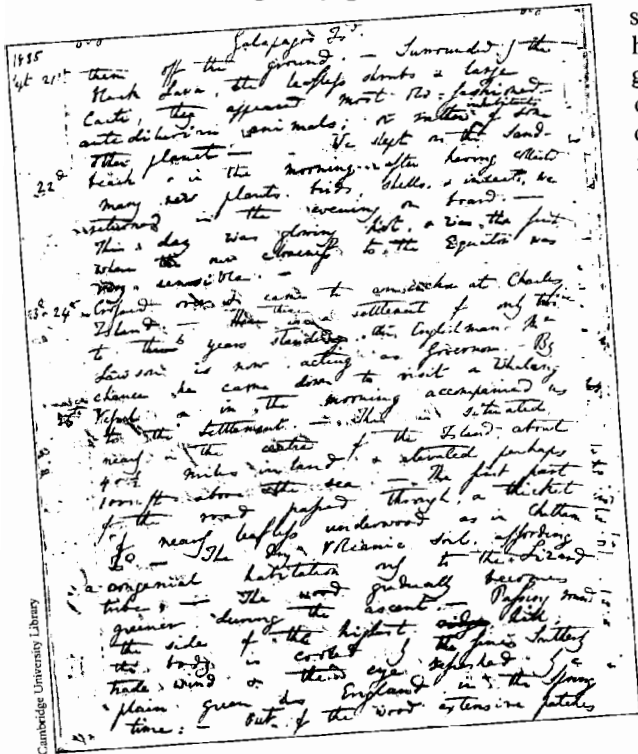 1835 Galapagos Isd
Sept 21st them off the ground. — Surrounded by the
black Lava, the leafless shrubs & large
Cacti, they appeared most old-fashioned
antediluvian animals; or rather inhabitants of some
other planet. — We slept on the sand-
22d beach, & in the morning after having collected
many new plants, birds, shells & insects, we
returned in the evening on board. —
This day was glowing hot, & was the first
when our closeness to the Equator was
very sensible. —
23d & 24th Crossed over & came to an anchor at Charles
Island. — Here is a settlement of only five
to six years standing. An Englishman Mr
Lawson is now acting as Governor. — By
chance he came down to visit a Whaling
Vessel & in the morning accompanied us
to the Settlement. — This is situated
nearly in the centre of the Island, about
4 & 1/2 miles inland, & elevated perhaps
1000 ft above the sea. — The first part
of the road passed through a thicket
of nearly leafless underwood as in Chatham
Isd. — The dry Volcanic soil affording
a congenial habitation only to the Lizard
tribe. — The wood gradually becomes
greener during the ascent. — Passing round
the side of the highest hill,
the body is cooled by the fine Southerly
trade wind & the eye refreshed by a
plain green as England in the Spring
time. — Out of the wood extensive patches
Cambridge University Library